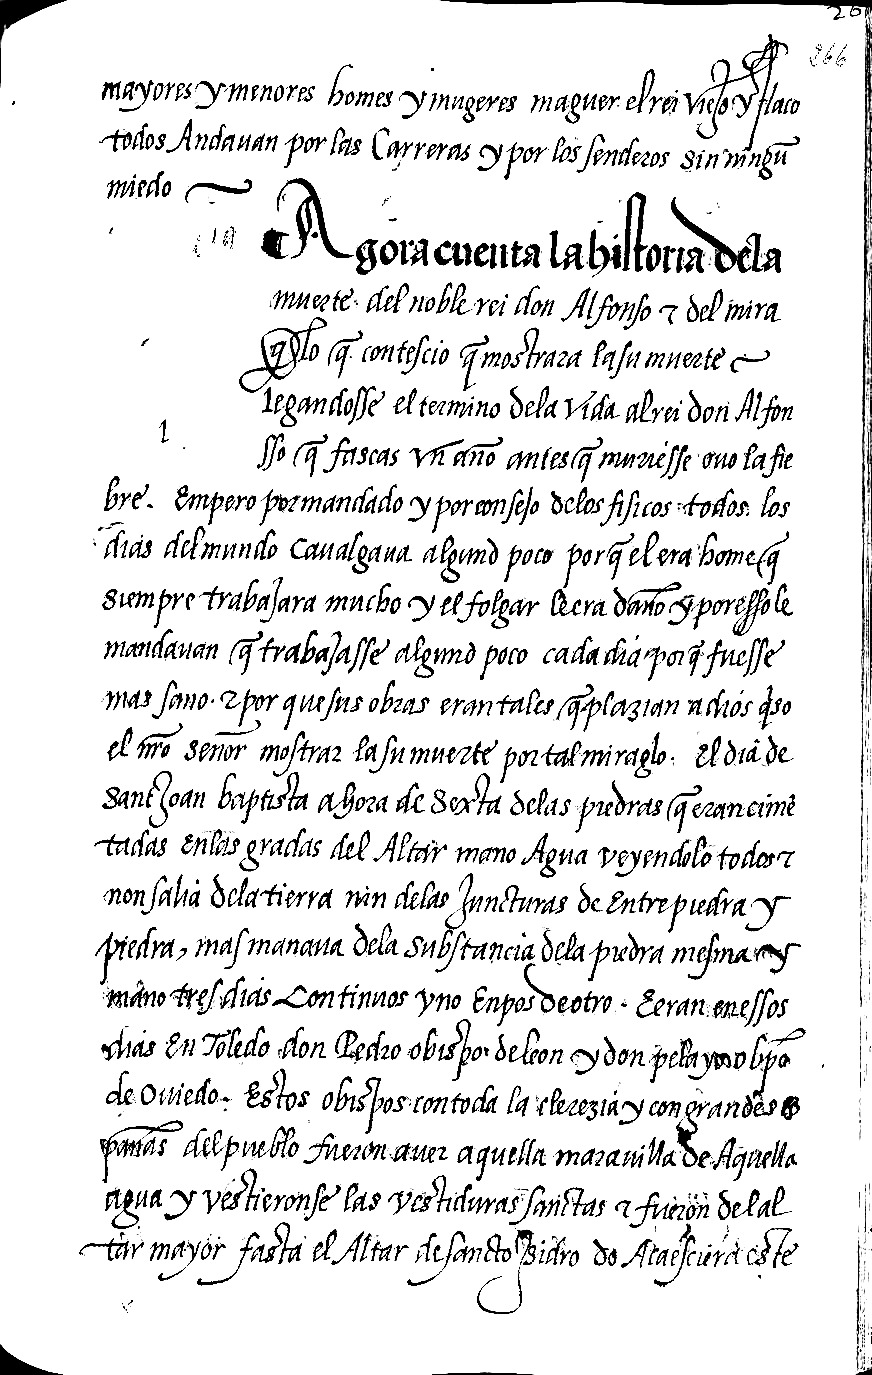 266
mayores y menores homes y mugeres maguer el rei viejo y flaco
todos Andauan por las Carreras y por los senderos sin ningũ
miedo
Agora cuenta la historia de la
muerte del noble rei don Alfonso τ del mira
glo q̃ contescio q̃ mostrara la su muerte
legandosse el termino de la Vida al rei don Alfon
sso q̃ fascas vn año antes q̃ muriesse ouo la fie
bre. Empero por mandado y por consejo de los fisicos todos los
dias del mundo Caualgaua algund poco por q̃ el era home q̃
siempre trabajara mucho y el folgar le era daño y por esso le
mandauan q̃ trabajasse algund poco cada dia por q̃ fuesse
mas sano. τ por que sus obras eran tales q̃ plazian a dios q̃so
el nr̃o señor mostrar la su muerte por tal miraglo. El dia de
Sant Joan baptista a hora de Sexta de las piedras q̃ eran cimẽ
tadas En las gradas del Altar mano Agua veyendolo todos τ
non salia de la tierra nin de las Juncturas de Entre piedra y
piedra, mas manaua de la substancia de la piedra mesma y
mano tres dias Continuos vno Enpos de otro. E eran en essos
dias En Toledo don Pedro obispo de leon y don pelayo obp̃o
de Ouiedo. Estos obispos con toda la clerezia y con grandes
pañas del pueblo fueron a uer aquella marauilla de Aquella
agua y vestieronse las vestiduras sanctas τ fueron del al
tar mayor fasta el Altar de sancto Isidro do Acaesciera este